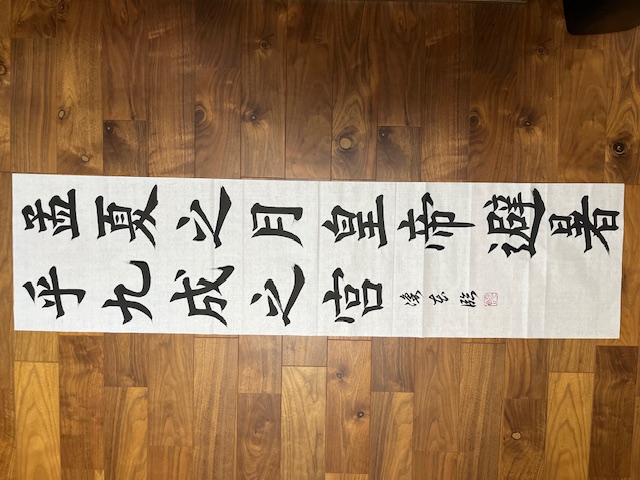 孟夏之月皇帝避暑
乎九成之宮
臨